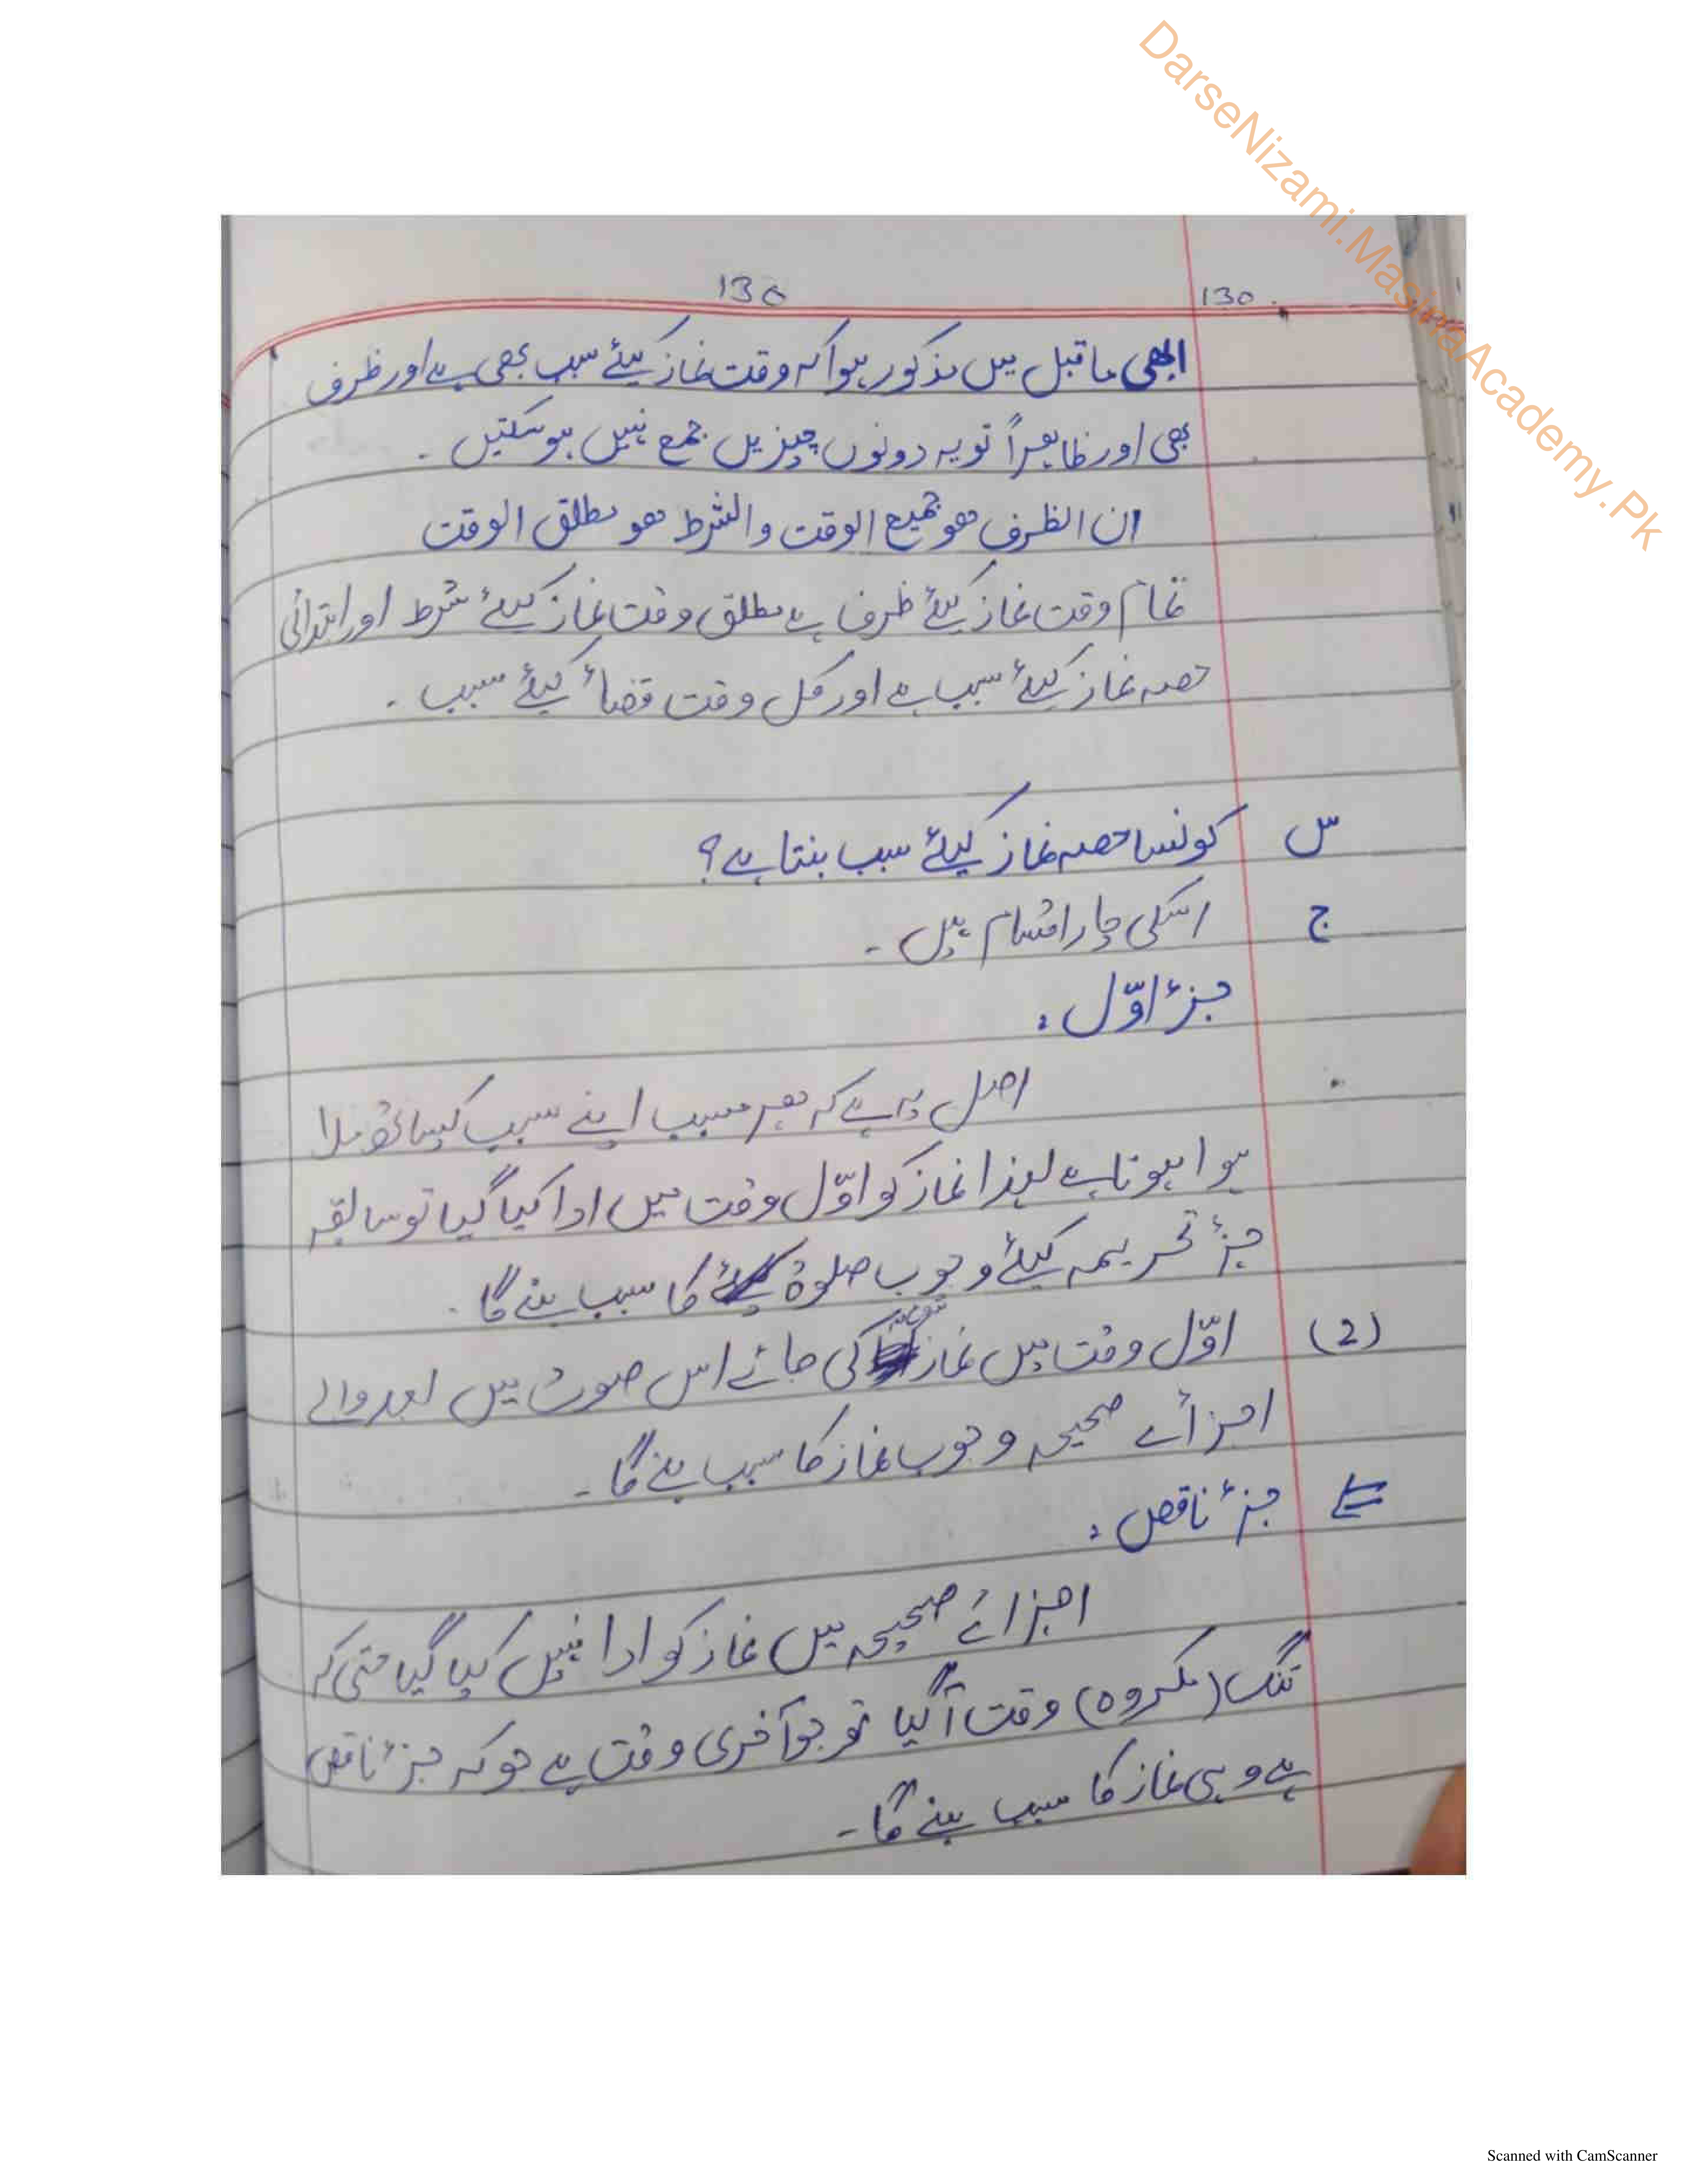 DarseNizami.MasnaAcademy.Pk
130
130
ابھی ما قبل میں مذکور ہوا کہ وقت نماز کیلئے سبب بھی ہے اور ظرف
بھی اور ظاہراً تو یہ دونوں چیزیں جمع نہیں ہو سکتیں ۔
ان الظرف ھو جمیع الوقت والشرط ھو مطلق الوقت
تمام وقت نماز کیلئے ظرف ہے مطلق وقت نماز کیلئے شرط اور ابتدائی
حصہ نماز کیلئے سبب ہے اور کل وقت قضاءً کیلئے سبب ۔
س کونسا حصہ نماز کیلئے سبب بنتا ہے؟
ج اسکی چار اقسام ہیں ۔
جزءِ اوّل :
اصل یہ ہے کہ ہر مسبب اپنے سبب کیساتھ ملا
ہوا ہوتا ہے لہذا نماز کو اوّل وقت میں ادا کیا گیا تو سابقہ
جزءِ تحریمہ کیلئے وجوب صلوۃ کا سبب بنے گا ۔
(2) اوّل وقت میں نماز نہ کی جائے اس صورت میں بعد والے
اجزائے صحیحہ وجوب نماز کا سبب بنے گا ۔
جزءِ ناقص :
اجزائے صحیحہ میں نماز کو ادا نہیں کیا گیا حتی کہ
تنگ (مکروہ) وقت آ گیا تو جو آخری وقت ہے جو کہ جزءِ ناقص
ہے وہی نماز کا سبب بنے گا ۔
Scanned with CamScanner